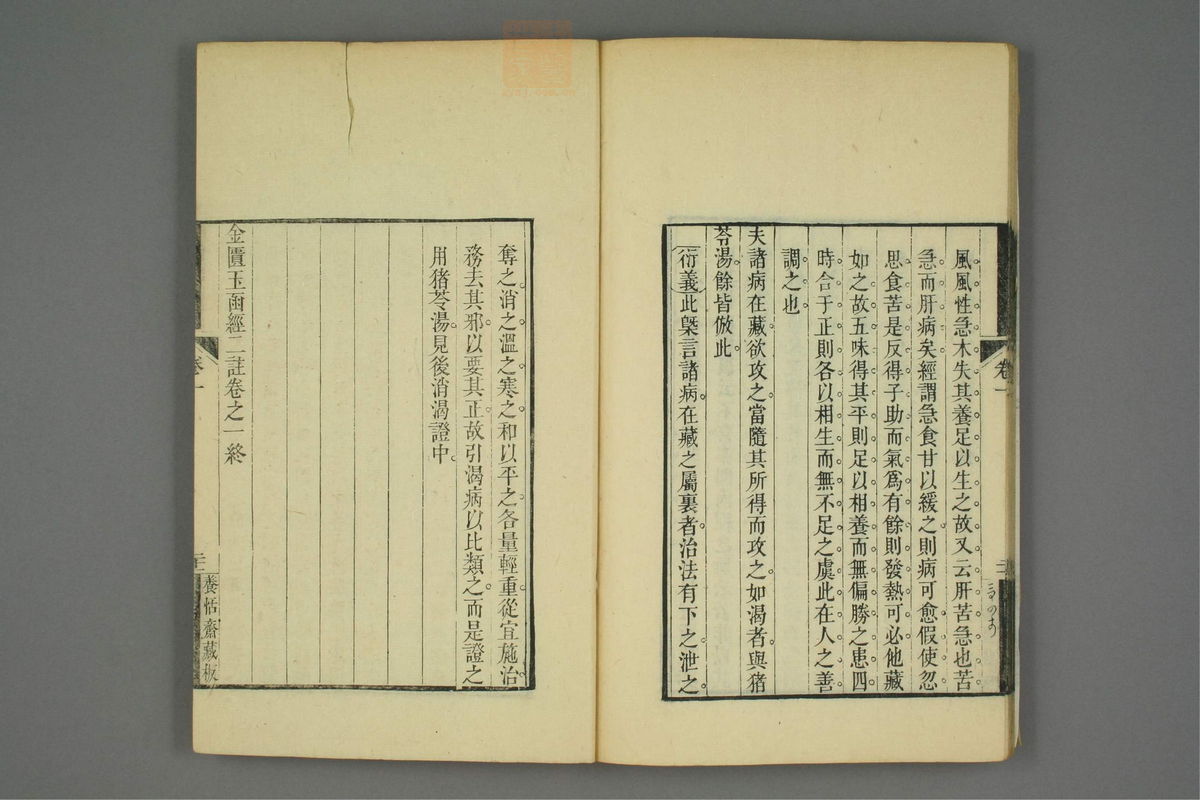 風風性急木失其養足以生之故又云肝苦急也苦
急而肝病矣經謂急食甘以緩之則病可愈假使忽
思食苦是反得子助而氣爲有餘則發熱可必他藏
如之故五味得其平則足以相養而無偏勝之患四
時合于正則各以相生而無不足之虞此在人之善
調之也
夫諸病在藏欲攻之當隨其所得而攻之如渴者與猪
苓湯餘皆倣此
衍義此槩言諸病在藏之屬裏者治法有下之泄之
卷一
二
奪之消之溫之寒之和以平之各量輕重從宜施治
務去其邪以要其正故引渴病以比類之而是證之
用猪苓湯見後消渴證中
金匱玉函經二註卷之一終
卷一
二
養恬齋藏板